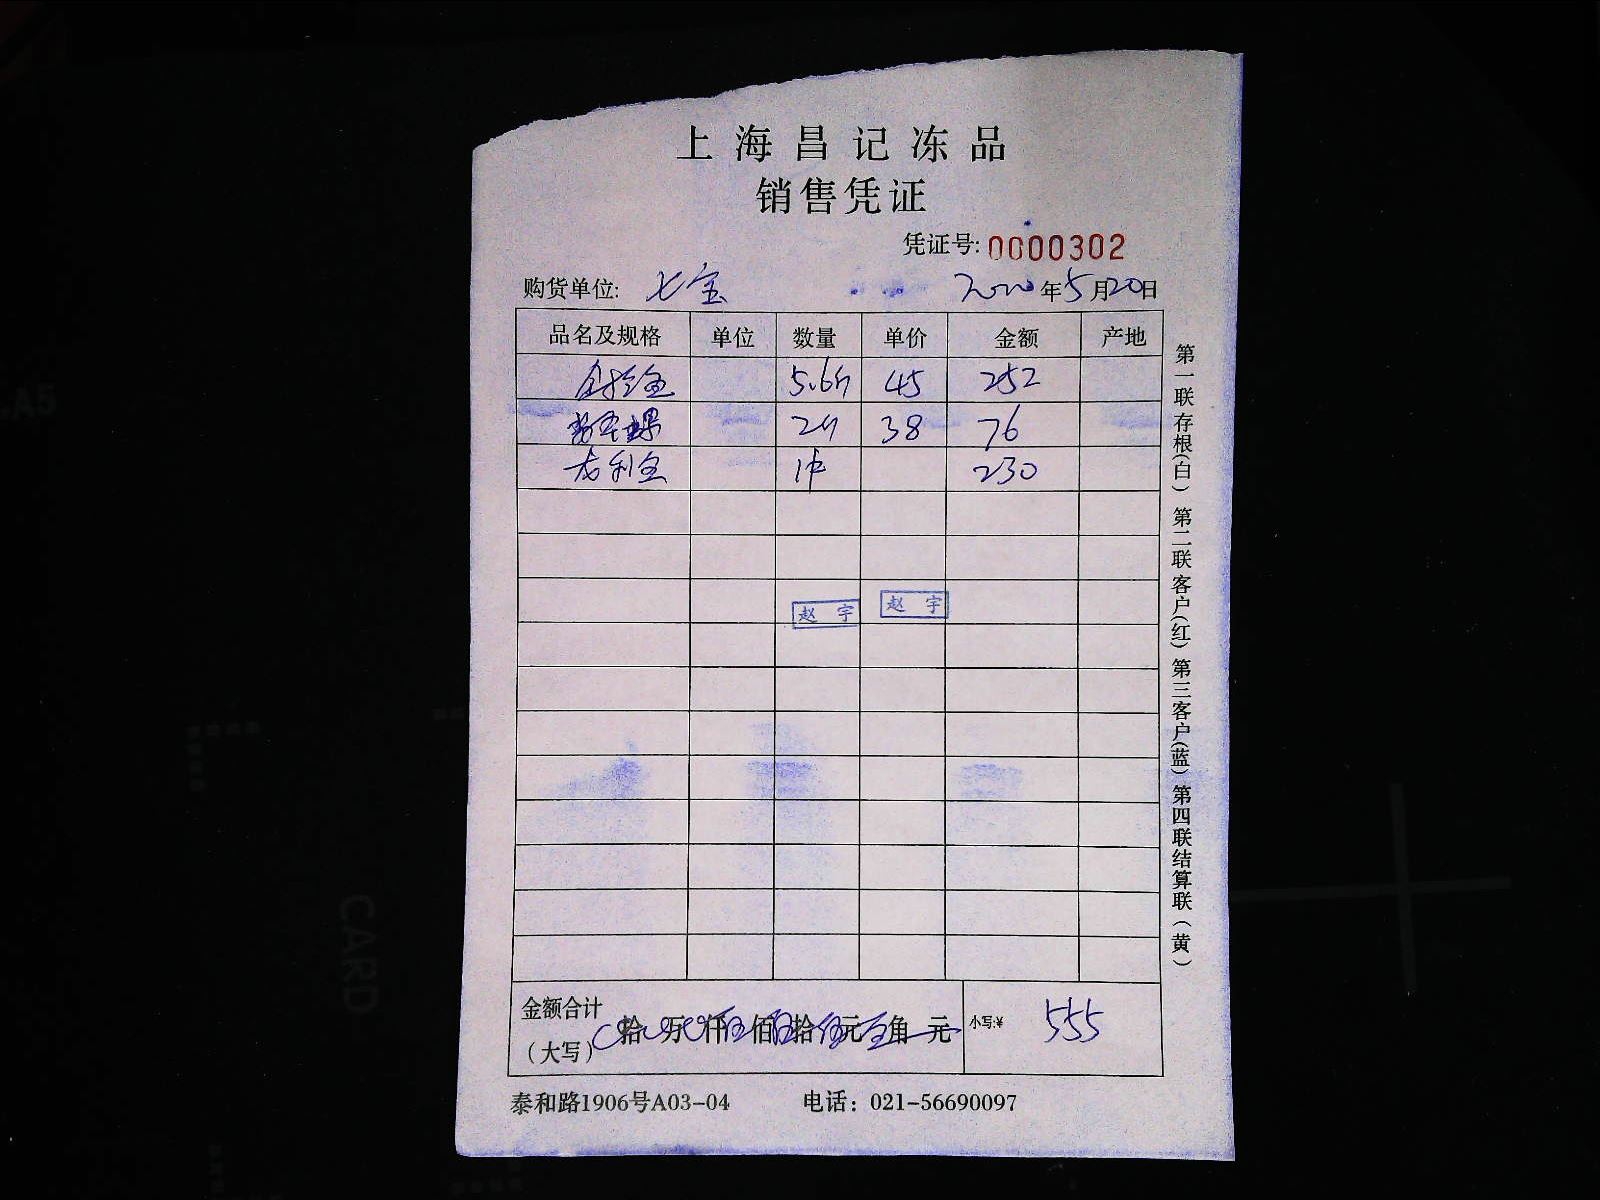 上海昌记冻品
销售凭证
凭证号: 0000302
购货单位: 七宝 2020年5月20日
品名及规格 单位 数量 单价 金额 产地
5.6斤 45 252
2斤 38 76
1件 230
赵宇 赵宇
金额合计 拾 万 仟 佰 拾 元 角 元 小写:¥ 555
（大写）
泰和路1906号A03-04 电话：021-56690097
第一联存根(白) 第二联客户(红) 第三客户(蓝) 第四联结算联(黄)
A5
CARD